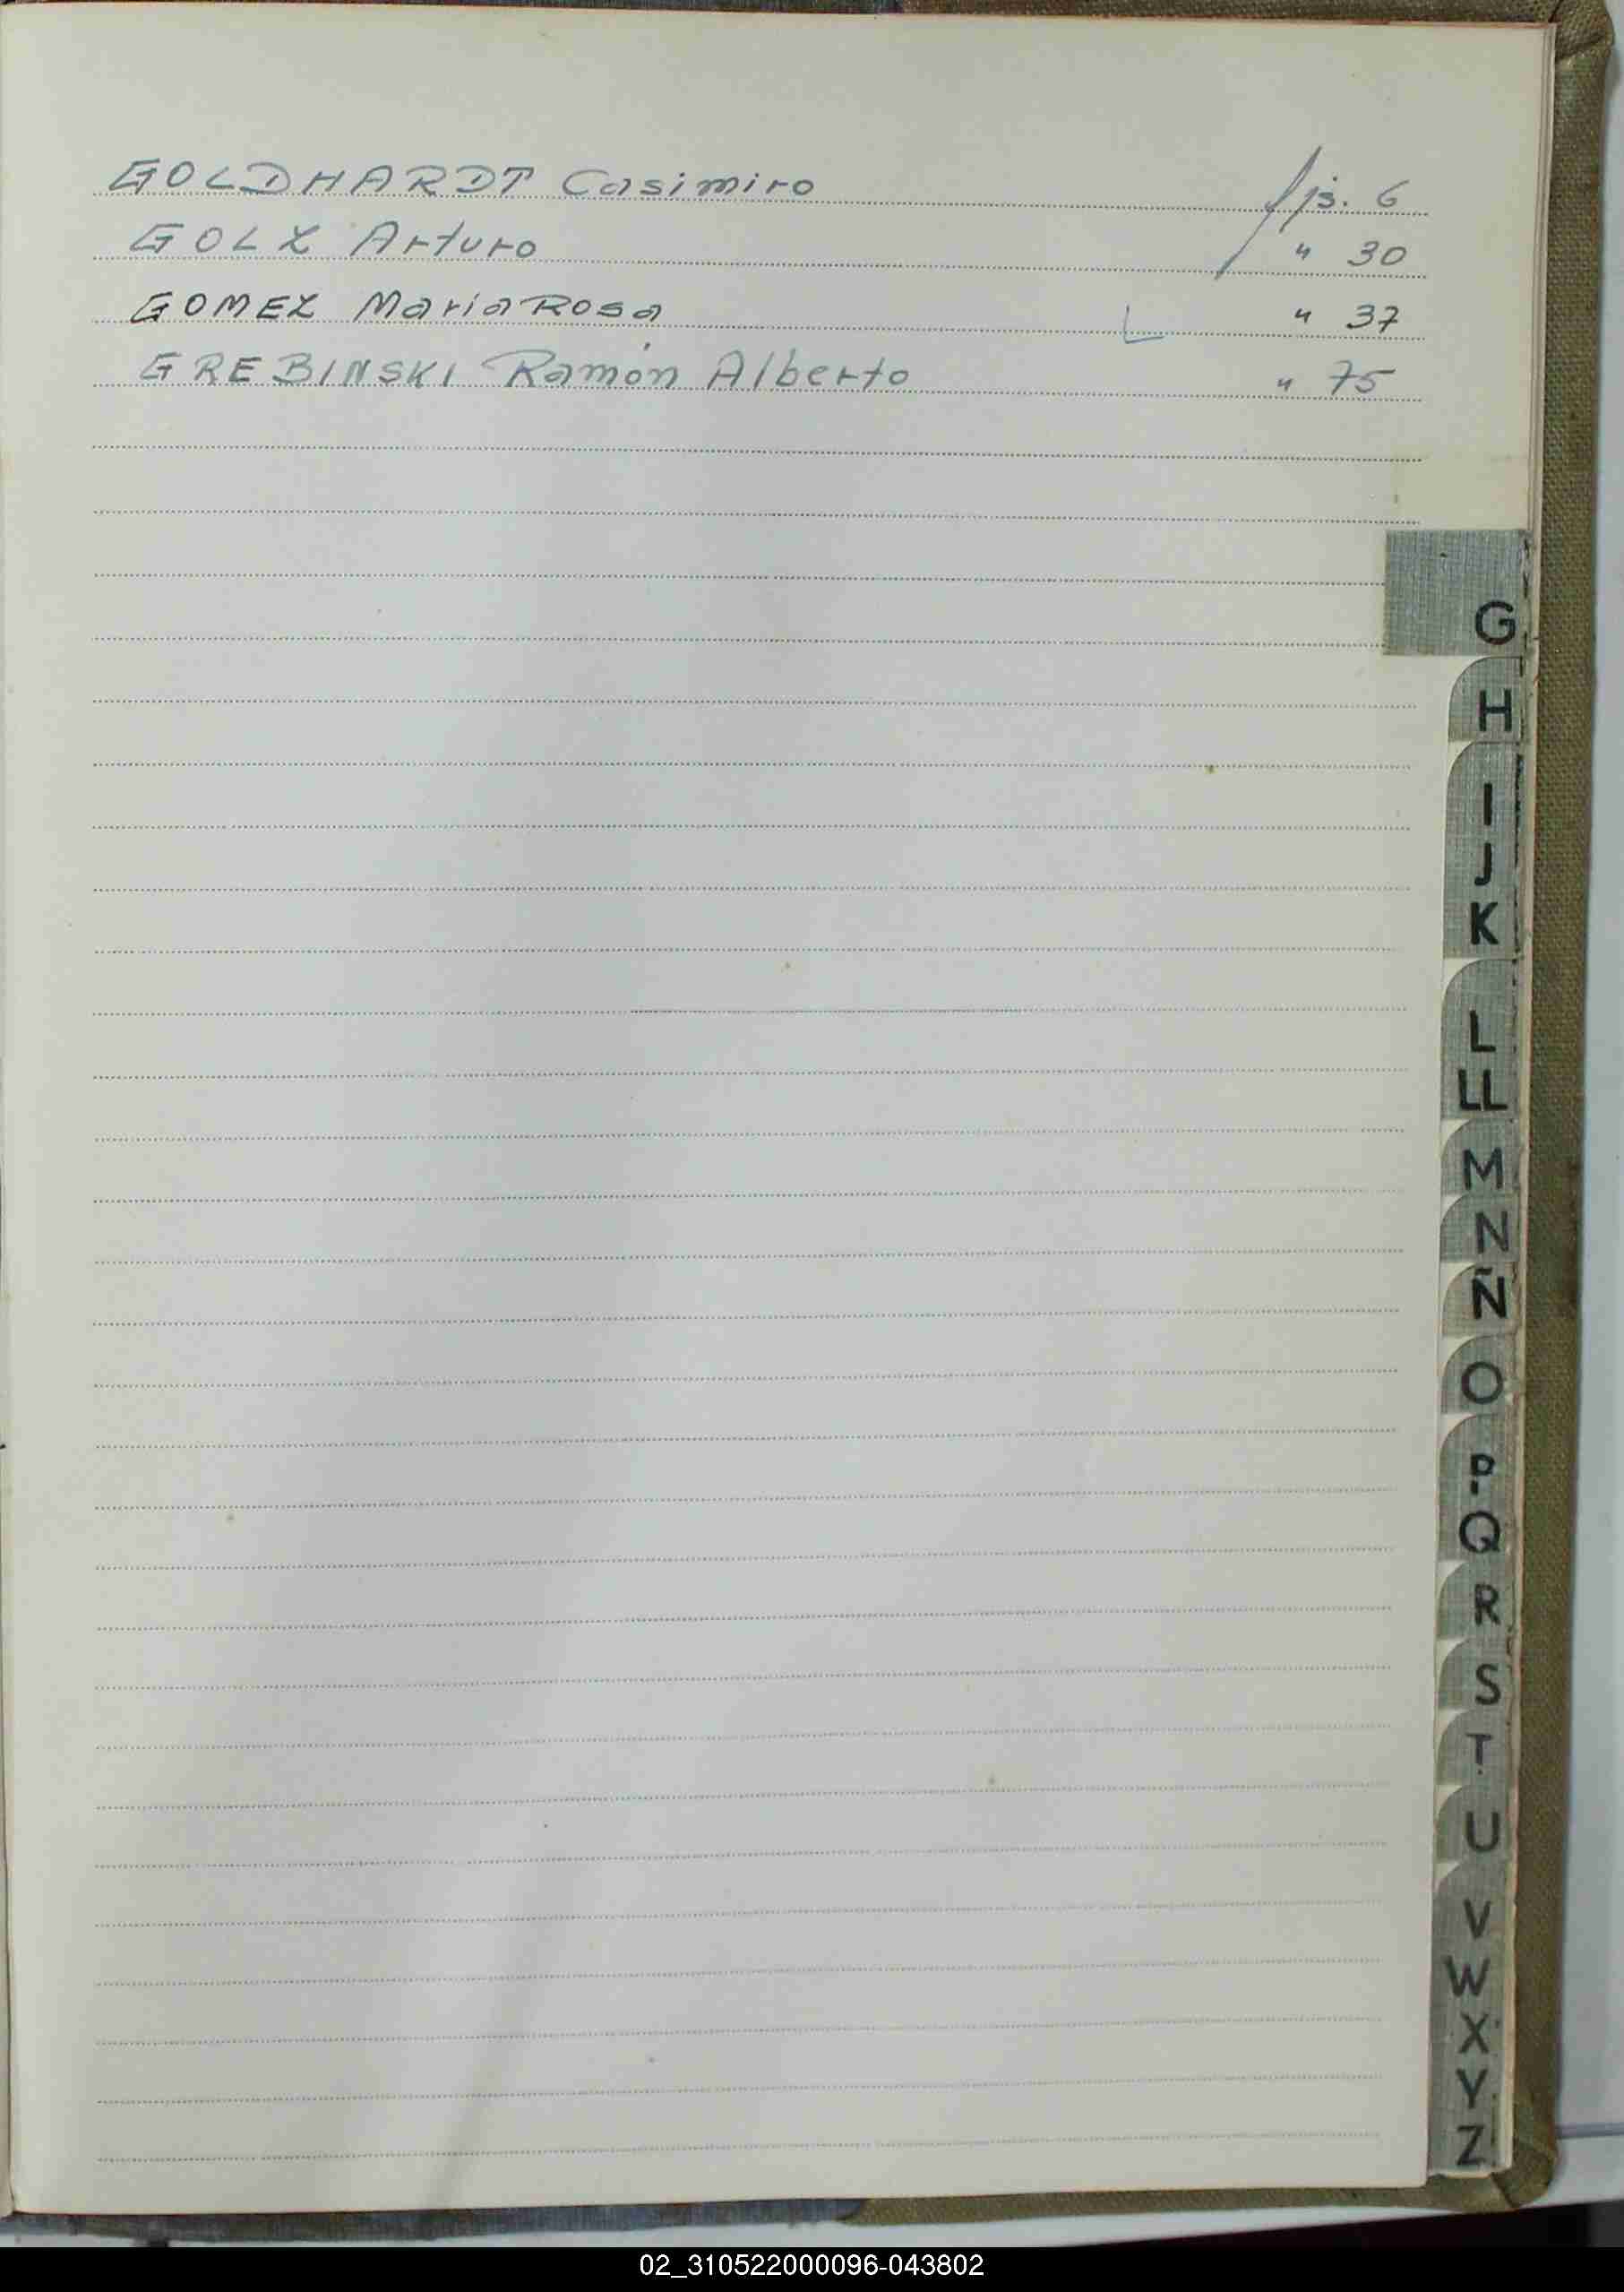 GOLDHARDT Casimiro fjs. 6
GOLZ Arturo " 30
GOMEZ Maria Rosa " 37
GREBINSKI Ramón Alberto " 75
G
H
I
J
K
L
LL
M
N
Ñ
O
P
Q
R
S
T
U
V
W
X
Y
Z
02_310522000096-043802